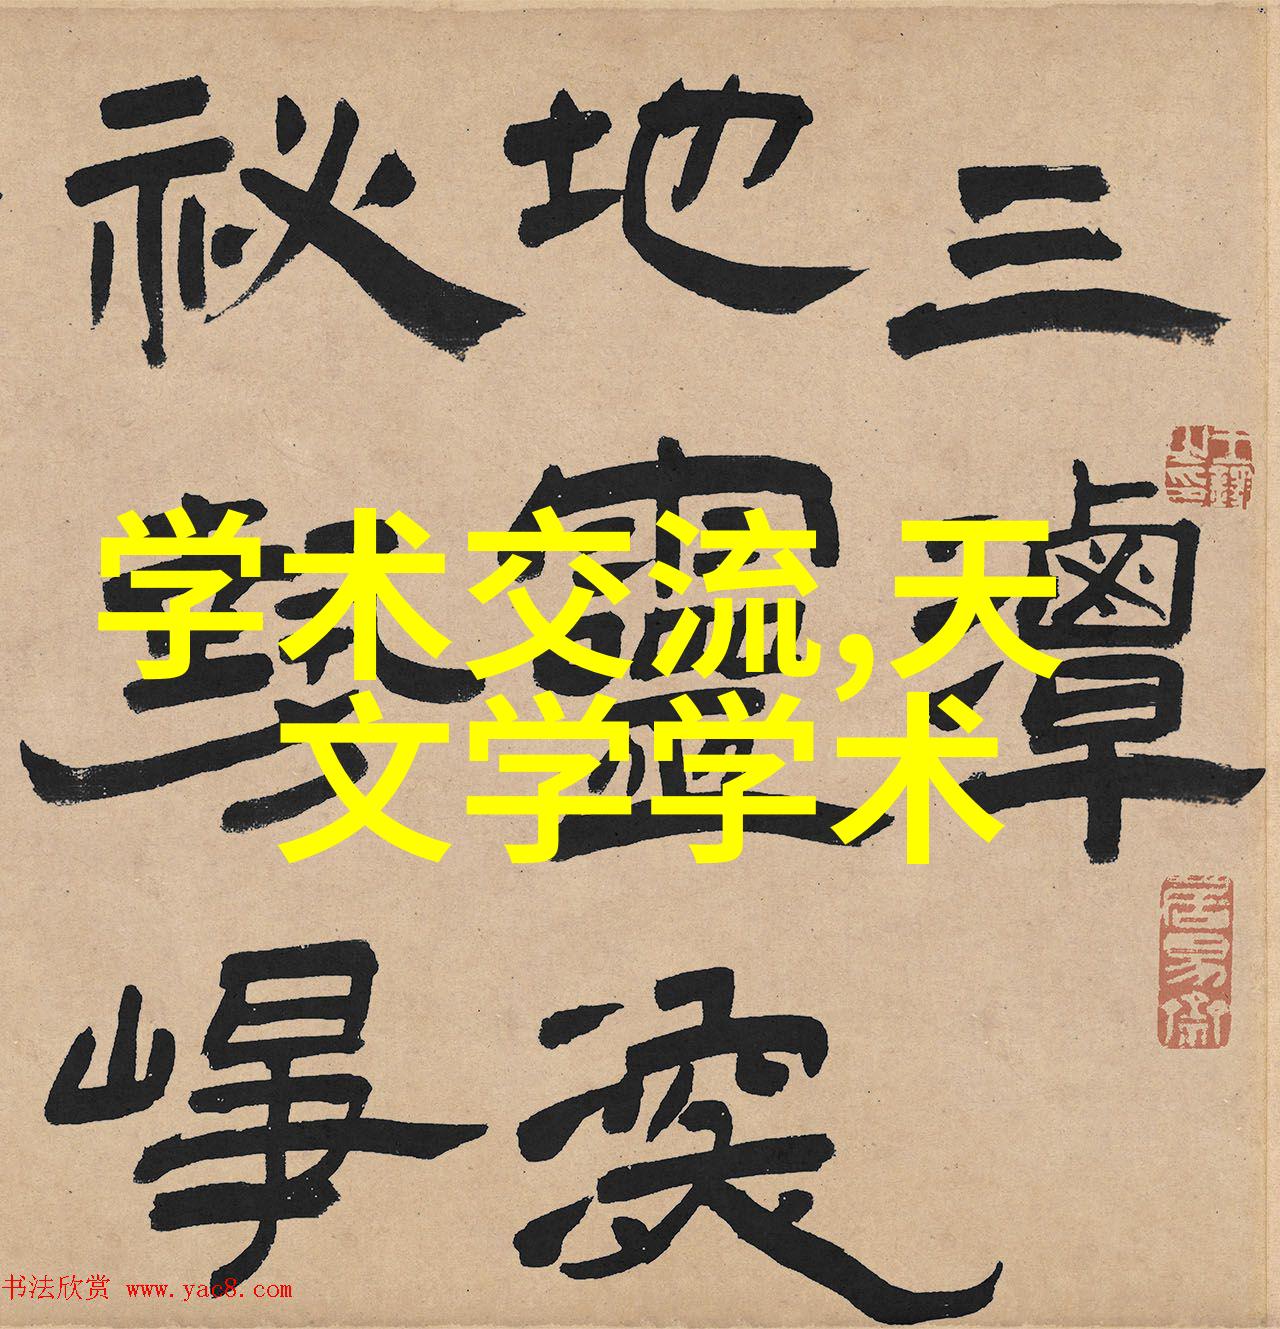 三潭
地靈
秘勢
学术交流,天
文学学术
书法欣赏 www.yac8.com